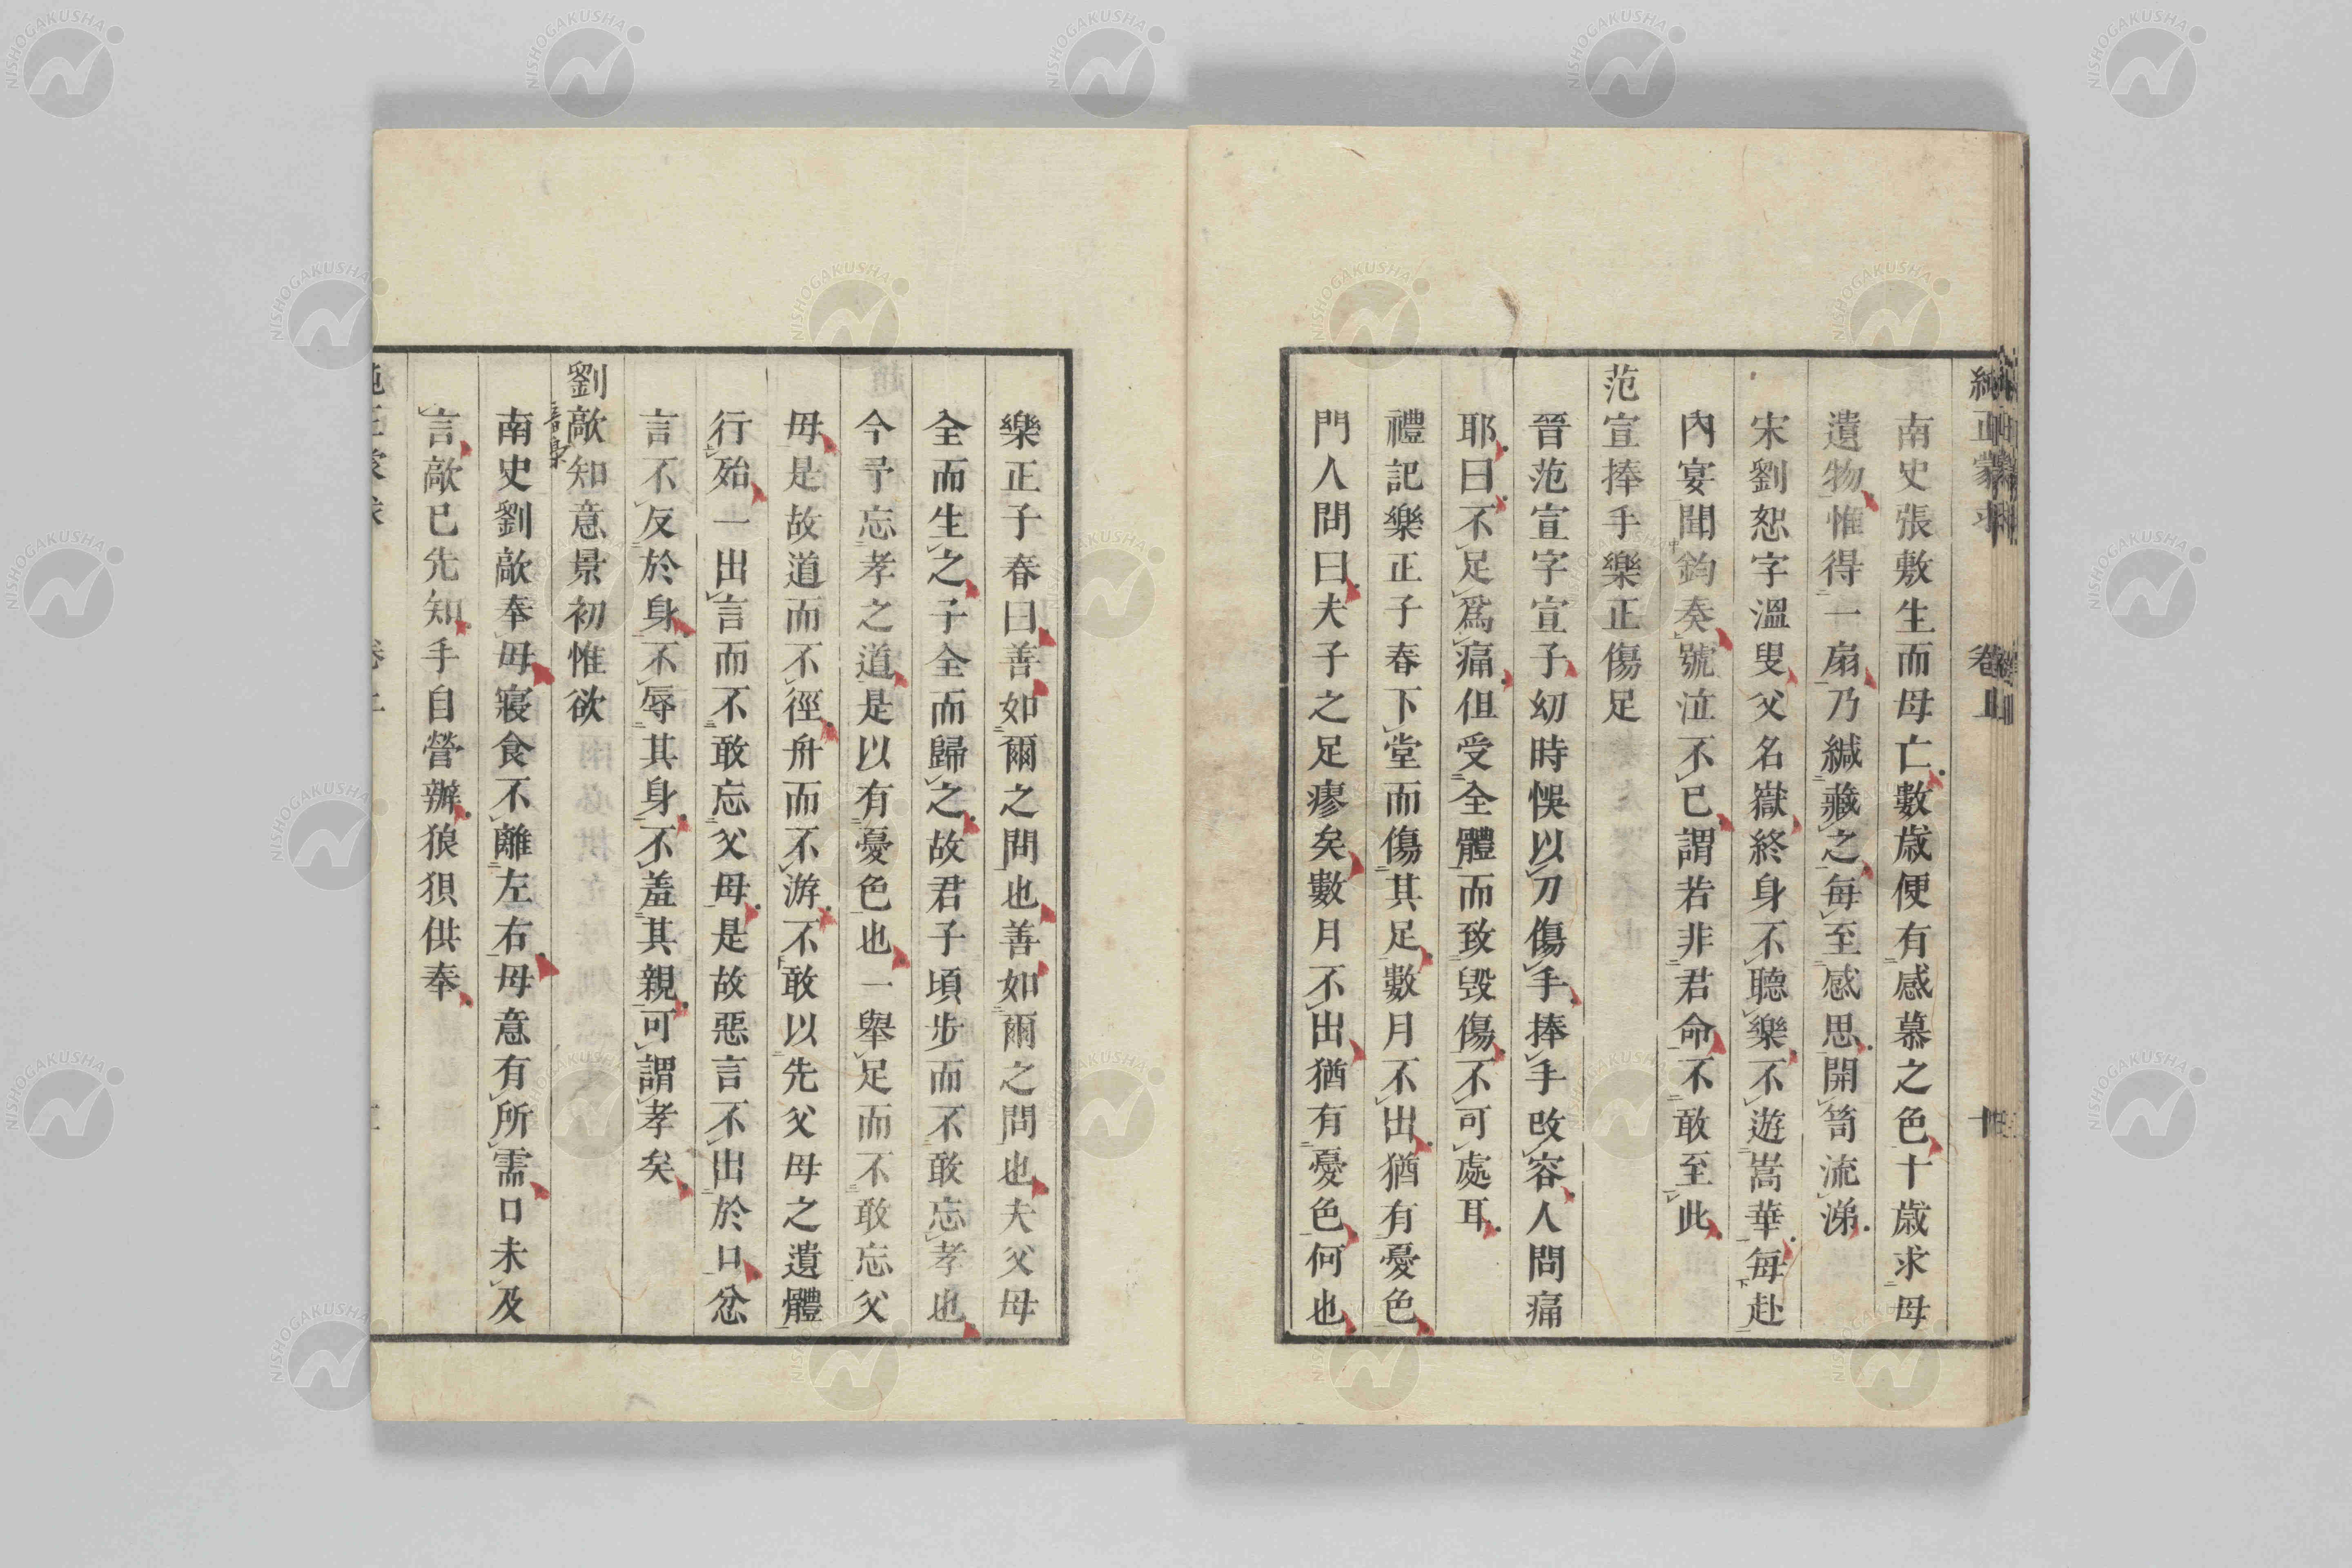 純正蒙求 卷上
南史張敷生而母亡數歳便有感慕之色十歳求母
遺物惟得一扇乃緘藏之每至感思開笥流涕
宋劉恕字溫叟父名嶽終身不聽樂不遊嵩華每赴
內宴聞鈞奏號泣不已謂若非君命不敢至此
范宣捧手樂正傷足
晉范宣字宣子幼時悞以刀傷手捧手改容人問痛
耶曰不足爲痛但受全體而致毀傷不可處耳
禮記樂正子春下堂而傷其足數月不出猶有憂色
門人問曰夫子之足瘳矣數月不出猶有憂色何也
樂正子春曰善如爾之問也善如爾之問也夫父母
全而生之子全而歸之故君子頃步而不敢忘孝也
今予忘孝之道是以有憂色也一舉足而不敢忘父
母是故道而不徑舟而不游不敢以先父母之遺體
行殆一出言而不敢忘父母是故惡言不出於口忿
言不反於身不辱其身不羞其親可謂孝矣
劉歊知意景初惟欲
音梟
南史劉歊奉母寢食不離左右母意有所需口未及
言歊已先知手自營辦狼狽供奉
NISHOGAKUSHA